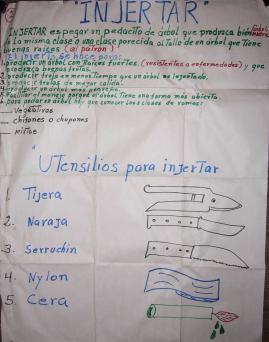 "INJERTAR"
INJERTAR es pegar un pedacito de árbol que produzca bien
de la misma clase o una clase parecida al tallo de un árbol que tiene
buenas raíces (al patron)
El injerto se hace para:
1. producir un árbol con raíces fuertes. (resistentes a enfermedades) y que
produzca buenas frutas.
2. producir fruta en menos tiempo que un árbol no injertado.
3. producir frutas de mejor calidad.
4. producir un árbol más pequeño.
5. Facilitar el manejo porque el árbol tiene una forma más abierta.
6. para podar un árbol hay que conocer las clases de ramas:
Vegetativas
Chifones o chupones
Mixtas
"Utensilios para injertar
1. Tijera
2. Navaja
3. Serruchin
4. Nylon
5. Cera